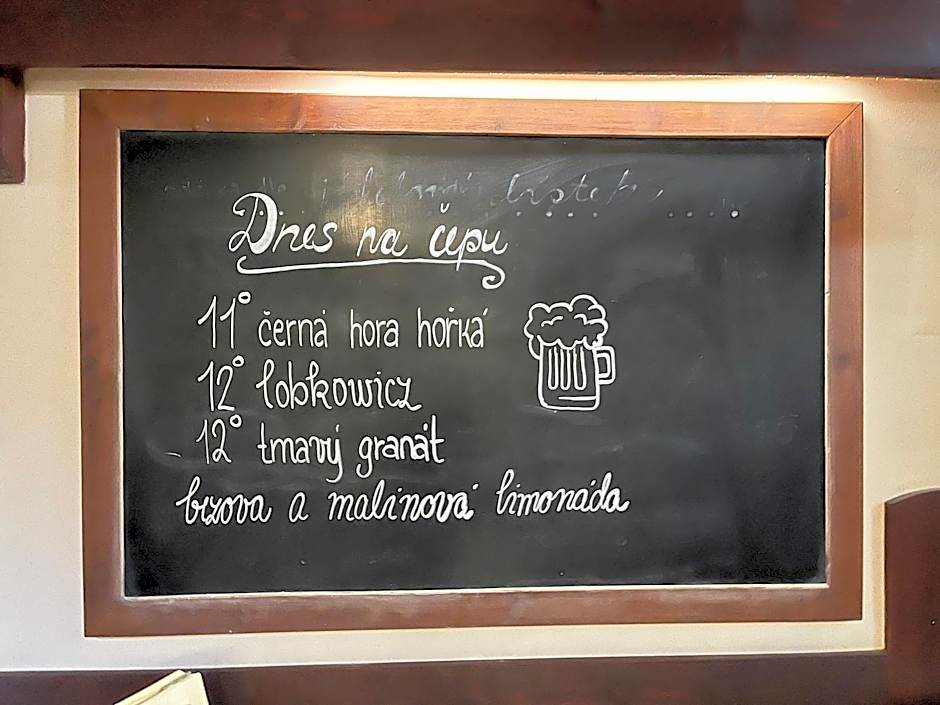 Dnes na čepu
11° černá hora hořká
12° lobkowicz
12° tmavý granát
brzova a malinová limonáda